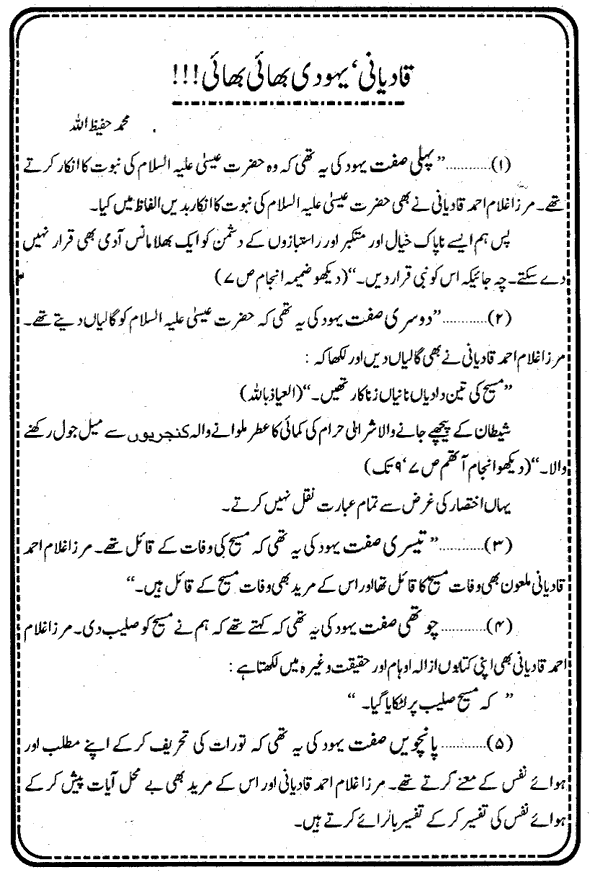 قادیانی‘ یہودی بھائی بھائی!!!
محمد حفیظ اللہ
(۱)............” پہلی صفت یہود کی یہ تھی کہ وہ حضرت عیسیٰ علیہ السلام کی نبوت کا انکار کرتے
تھے۔ مرزا غلام احمد قادیانی نے بھی حضرت عیسیٰ علیہ السلام کی نبوت کا انکار بدیں الفاظ میں کیا۔
پس ہم ایسے ناپاک خیال اور متکبر اور راستبازوں کے دشمن کو ایک بھلا مانس آدمی بھی قرار نہیں
دے سکتے۔ چہ جائیکہ اس کو نبی قرار دیں۔“ (دیکھو ضمیمہ انجام ص ۷)
(۲)............”دوسری صفت یہود کی یہ تھی کہ حضرت عیسیٰ علیہ السلام کو گالیاں دیتے تھے۔
مرزا غلام احمد قادیانی نے بھی گالیاں دیں اور لکھا کہ :
”مسیح کی تین دادیاں نانیاں زناکار تھیں۔“ (العیاذ باللہ)
شیطان کے پیچھے جانے والا شرابی حرام کی کمائی کا عطر ملوانے والہ کنجریوں سے میل جول رکھنے
والا۔“ (دیکھو انجام آتھم ص ۷‘۹ تک)
یہاں اختصار کی غرض سے تمام عبارت نقل نہیں کرتے۔
(۳)............” تیسری صفت یہود کی یہ تھی کہ مسیح کی وفات کے قائل تھے۔ مرزا غلام احمد
قادیانی ملعون بھی وفات مسیح کا قائل تھا اور اس کے مرید بھی وفات مسیح کے قائل ہیں۔“
(۴)............ چوتھی صفت یہود کی یہ تھی کہ کہتے تھے کہ ہم نے مسیح کو صلیب دی۔ مرزا غلام
احمد قادیانی بھی اپنی کتابوں ازالہ اوہام اور حقیقت وغیرہ میں لکھتا ہے :
” کہ مسیح صلیب پر لٹکایا گیا۔ “
(۵)............ پانچویں صفت یہود کی یہ تھی کہ تورات کی تحریف کر کے اپنے مطلب اور
ہوائے نفس کے معنے کرتے تھے۔ مرزا غلام احمد قادیانی اور اس کے مرید بھی بے محل آیات پیش کر کے
ہوائے نفس کی تفسیر کر کے تفسیر بالرائے کرتے ہیں۔